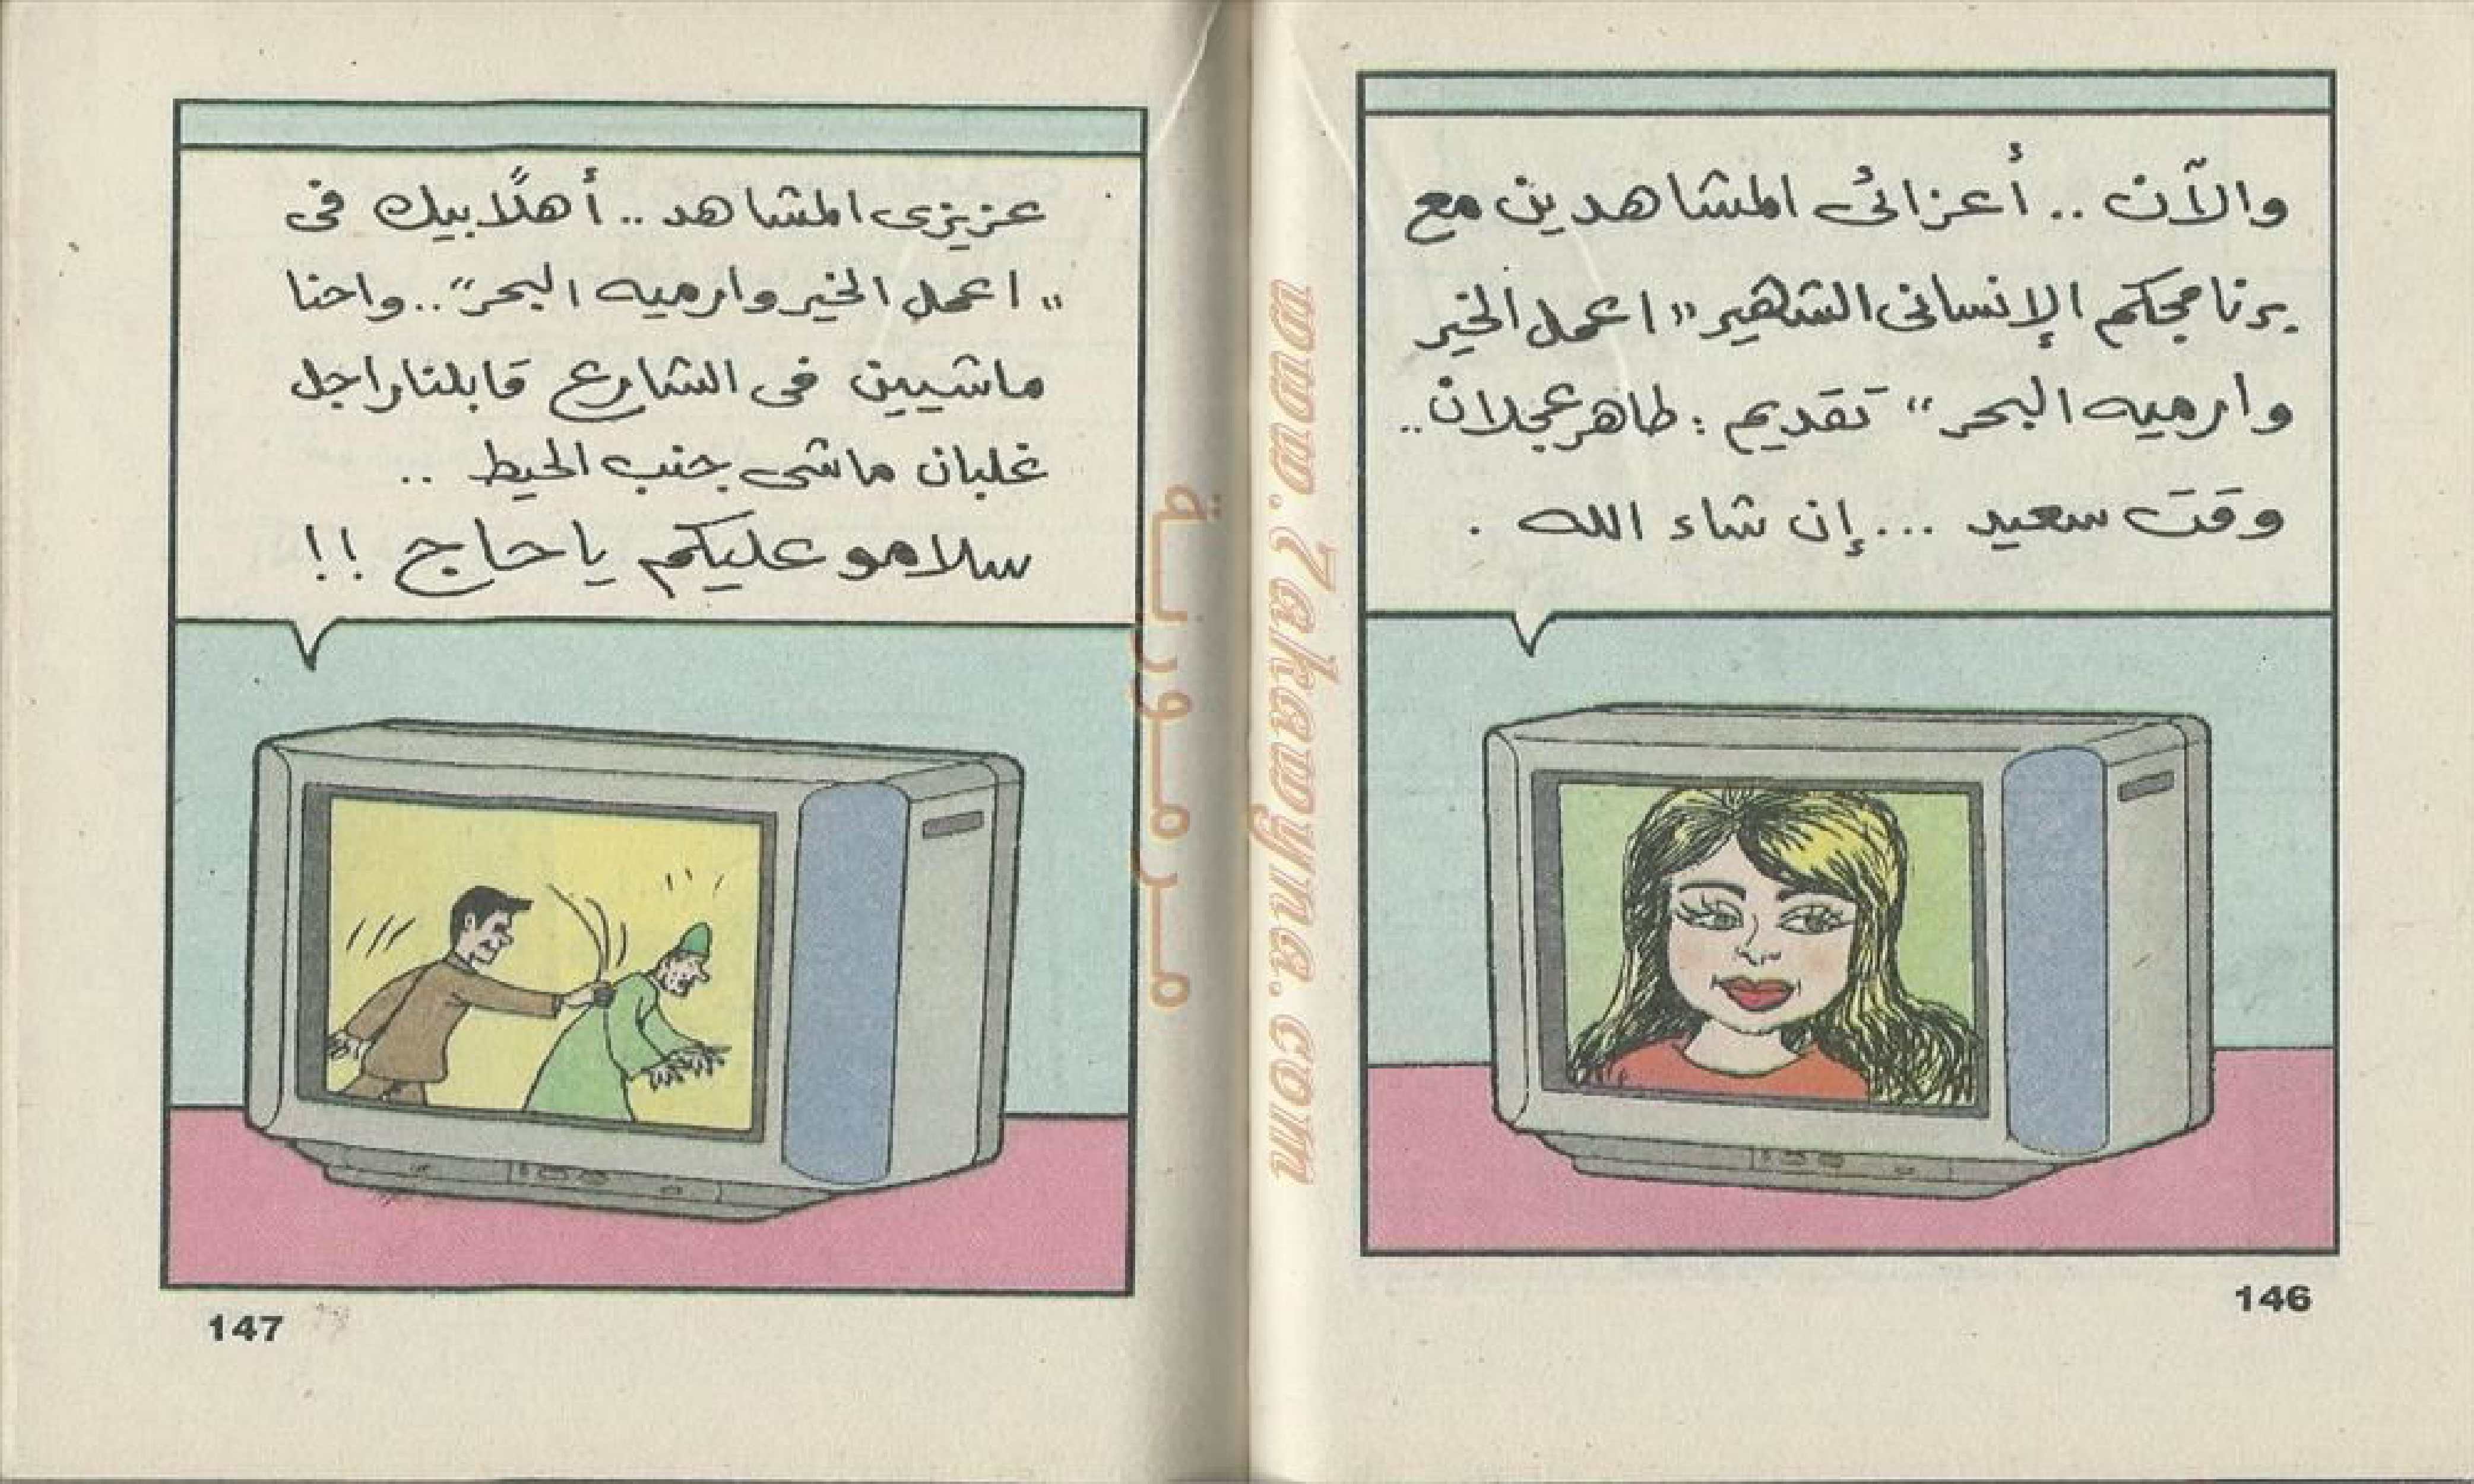 والآن .. أعزائى المشاهدين مع
برنامجكم الإنسانى الشهير "اعمل الخير
وارميه البحر" تقديم : طاهر عجلان ..
وقت سعيد ... إن شاء الله .
146
عزيزى المشاهد .. أهلًا بيك فى
"اعمل الخير وارميه البحر" .. واحنا
ماشيين فى الشارع قابلنا راجل
غلبان ماشى جنب الحيط ..
سلامو عليكم يا حاج !!
147
www.7akawyna.com
مرمورنة